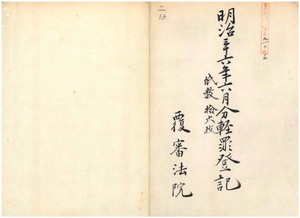 明治三十六年六月分輕罪登記
紙數拾六枚
覆審法院
二
13